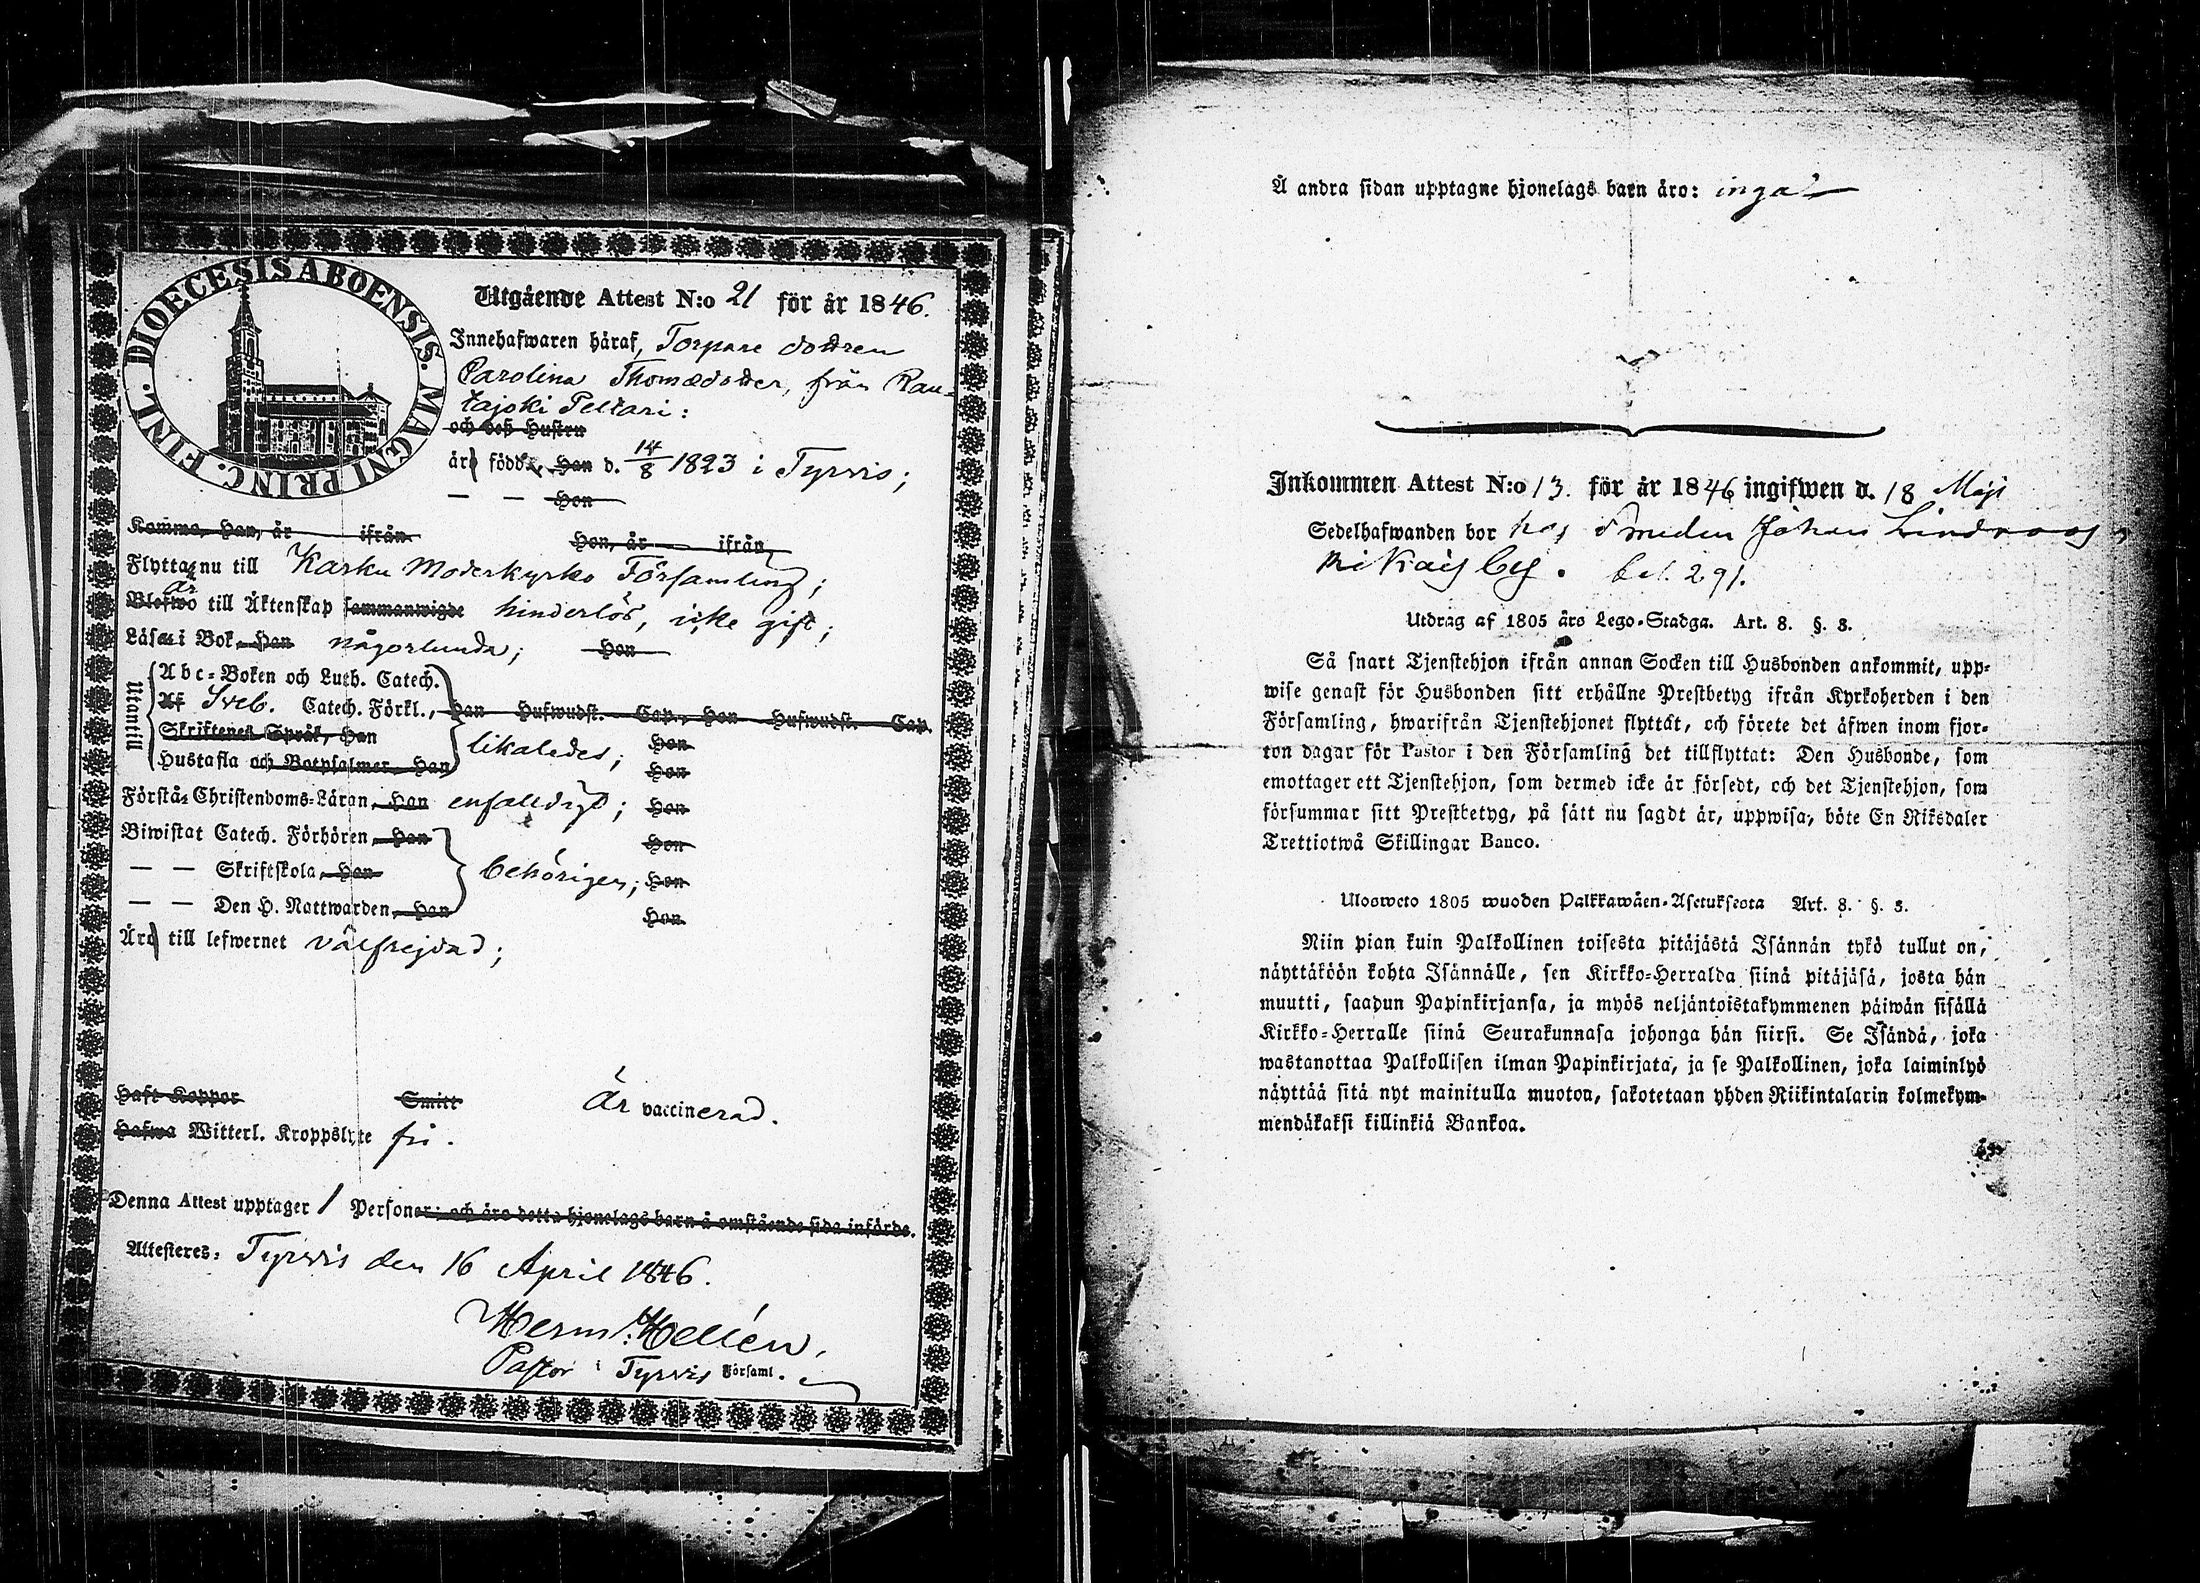 DIOECESIS ABOENSIS. MAGNI PRINC. FINL.
Utgående Attest N:o 21 för år 1846.
Innehafwaren häraf, Torpare dottren
Carolina Thomædotter, från Rau-
tajoki Peltari:
och deß Hustru
äro född, Han d. 14/8 1823 i Tyrvis;
— — Hon
Kommo, Han, år ifrån Hon, år ifrån
Flytta nu till Karku Moderkyrko Församling;
är
Blefwo till Äktenskap sammanwigde hinderlös, icke gift;
Läsa i Bok, Han någorlunda; Hon
Utantill
Abc-Boken och Luth. Catech.
Af Sveb. Catech. Förkl., Han Hufwudst. Cap., Hon Hufwudst. Cap.
Skriftenes Språk, Han likaledes; Hon
Hustafla och Botpsalmer, Han Hon
Förstå Christendoms-Läran, Han enfaldigt; Hon
Biwistat Catech. Förhören, Han Hon
— — Skriftskola, Han behörigen; Hon
— — Den H. Nattwarden, Han Hon
Äro till lefwernet välfrejdad;
Haft Koppor Smitt Är vaccinerad.
Hafwa Witterl. Kroppslyte fri.
Denna Attest upptager 1 Personer; och äro detta hjonelags barn å omstående sida införde.
Attesteres: Tyrvis den 16 April 1846.
Herm: Hellén,
Pastor i Tyrvis Församl.
Å andra sidan upptagne hjonelags barn äro: inga
Inkommen Attest N:o 13. för år 1846 ingifwen d. 18 Maji
Sedelhafwanden bor hos Smeden Johan Lindroos,
291.
Utdrag af 1805 års Lego-Stadga. Art. 8. §. 3.
Så snart Tjenstehjon ifrån annan Socken till Husbonden ankommit, upp-
wise genast för Husbonden sitt erhållne Prestbetyg ifrån Kyrkoherden i den
Församling, hwarifrån Tjenstehjonet flyttat, och förete det äfwen inom fjor-
ton dagar för Pastor i den Församling det tillflyttat: Den Husbonde, som
emottager ett Tjenstehjon, som dermed icke är försedt, och det Tjenstehjon, som
försummar sitt Prestbetyg, på sätt nu sagdt är, uppwisa, böte En Riksdaler
Trettiotwå Skillingar Banco.
Ulosweto 1805 wuoden Palkkawäen-Asetuksesta Art. 8. §. 3.
Niin pian kuin Palkollinen toisesta pitäjästä Isännän tykö tullut on,
näyttäköön kohta Isännälle, sen Kirkko-Herralda siinä pitäjäsä, josta hän
muutti, saadun Papinkirjansa, ja myös neljäntoistakymmenen päiwän sisällä
Kirkko-Herralle siinä Seurakunnasa johonga hän siirsi. Se Isändä, joka
wastanottaa Palkollisen ilman Papinkirjata, ja se Palkollinen, joka laiminlyö
näyttää sitä nyt mainitulla muoton, sakotetaan yhden Riikintalarin kolmekym-
mendäkaksi killinkiä Bankoa.